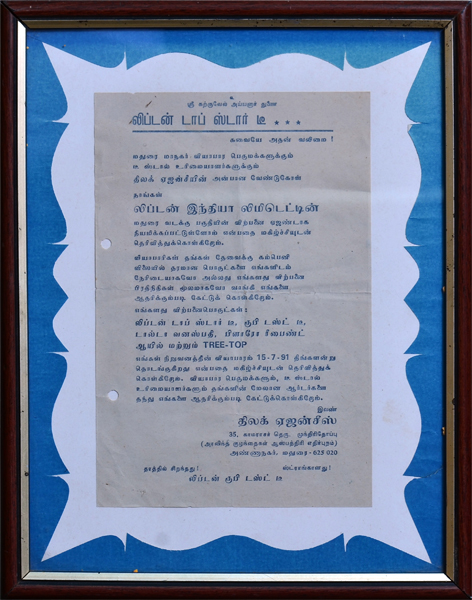 ஸ்ரீ கற்குவேல் அய்யனார் துணை
லிப்டன் டாப் ஸ்டார் டீ ★ ★ ★
சுவையே அதன் வலிமை !
மதுரை மாநகர் வியாபார பெருமக்களுக்கும்
டீ ஸ்டால் உரிமையாளர்களுக்கும்
திலக் ஏஜன்சீயின் அன்பான வேண்டுகோள்
நாங்கள்
லிப்டன் இந்தியா லிமிடெட்டின்
மதுரை வடக்கு பகுதியின் விற்பனை ஏஜண்டாக
நியமிக்கப்பட்டுள்ளோம் என்பதை மகிழ்ச்சியுடன்
தெரிவித்துக்கொள்கிறோம்.
வியாபாரிகள் தங்கள் தேவைக்கு கம்பெனி
விலையில் தரமான பொருட்களை எங்களிடம்
நேரிடையாகவோ அல்லது எங்களது விற்பனை
பிரதிநிதிகள் மூலமாகவோ வாங்கி எங்களை
ஆதரிக்கும்படி கேட்டுக் கொள்கிறோம்.
எங்களது விற்பனைபொருட்கள் :
லிப்டன் டாப் ஸ்டார் டீ, ரூபி டஸ்ட் டீ,
டால்டா வனஸ்பதி, பிளாரோ ரீபைண்ட்
ஆயில் மற்றும் TREE-TOP
எங்கள் நிறுவனத்தின் வியாபாரம் 15-7-91 திங்களன்று
தொடங்குகிறது என்பதை மகிழ்ச்சியுடன் தெரிவித்துக்
கொள்கிறோம். வியாபார பெருமக்களும், டீ ஸ்டால்
உரிமையாளர்களும் தங்களின் மேலான ஆர்டர்களை
தந்து எங்களை ஆதரிக்கும்படி கேட்டுக்கொள்கிறோம்.
இவண்
திலக் ஏஜன்சீஸ்
35, காமராசர் தெரு, முந்திரிதோப்பு
(அரவிந்த் குழந்தைகள் ஆஸ்பத்திரி எதிர்புறம்)
அண்ணாநகர், மதுரை-625 020
தரத்தில் சிறந்தது ! ஸ்ட்ராங்கானது !
லிப்டன் ரூபி டஸ்ட் டீ